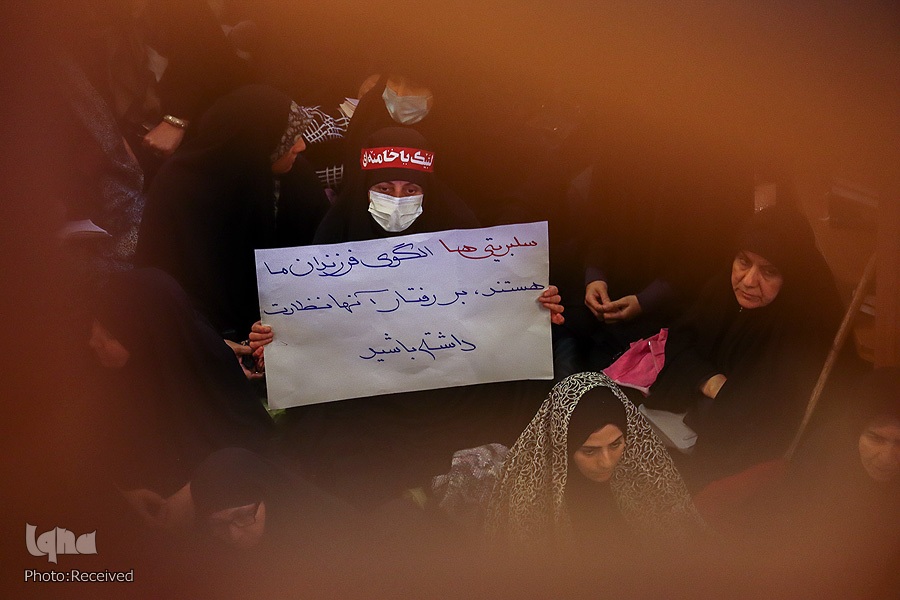 لبیک یا خامنه‌ای
سلبریتی ها الگوی فرزندان ما
هستند، بر رفتار آنها نظارت
داشته باشید
Iqna
Photo:Received